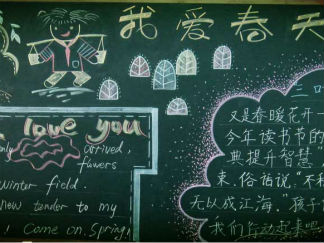 我爱春天
I love you
only arrived,
flowers
winter field.
new tender to my
! Come on. Spring!
三口
又是春暖花开一
今年读书节的
典提升智慧"
束，俗话说，"不积
无以成江海，"孩子
我们行动起来吧